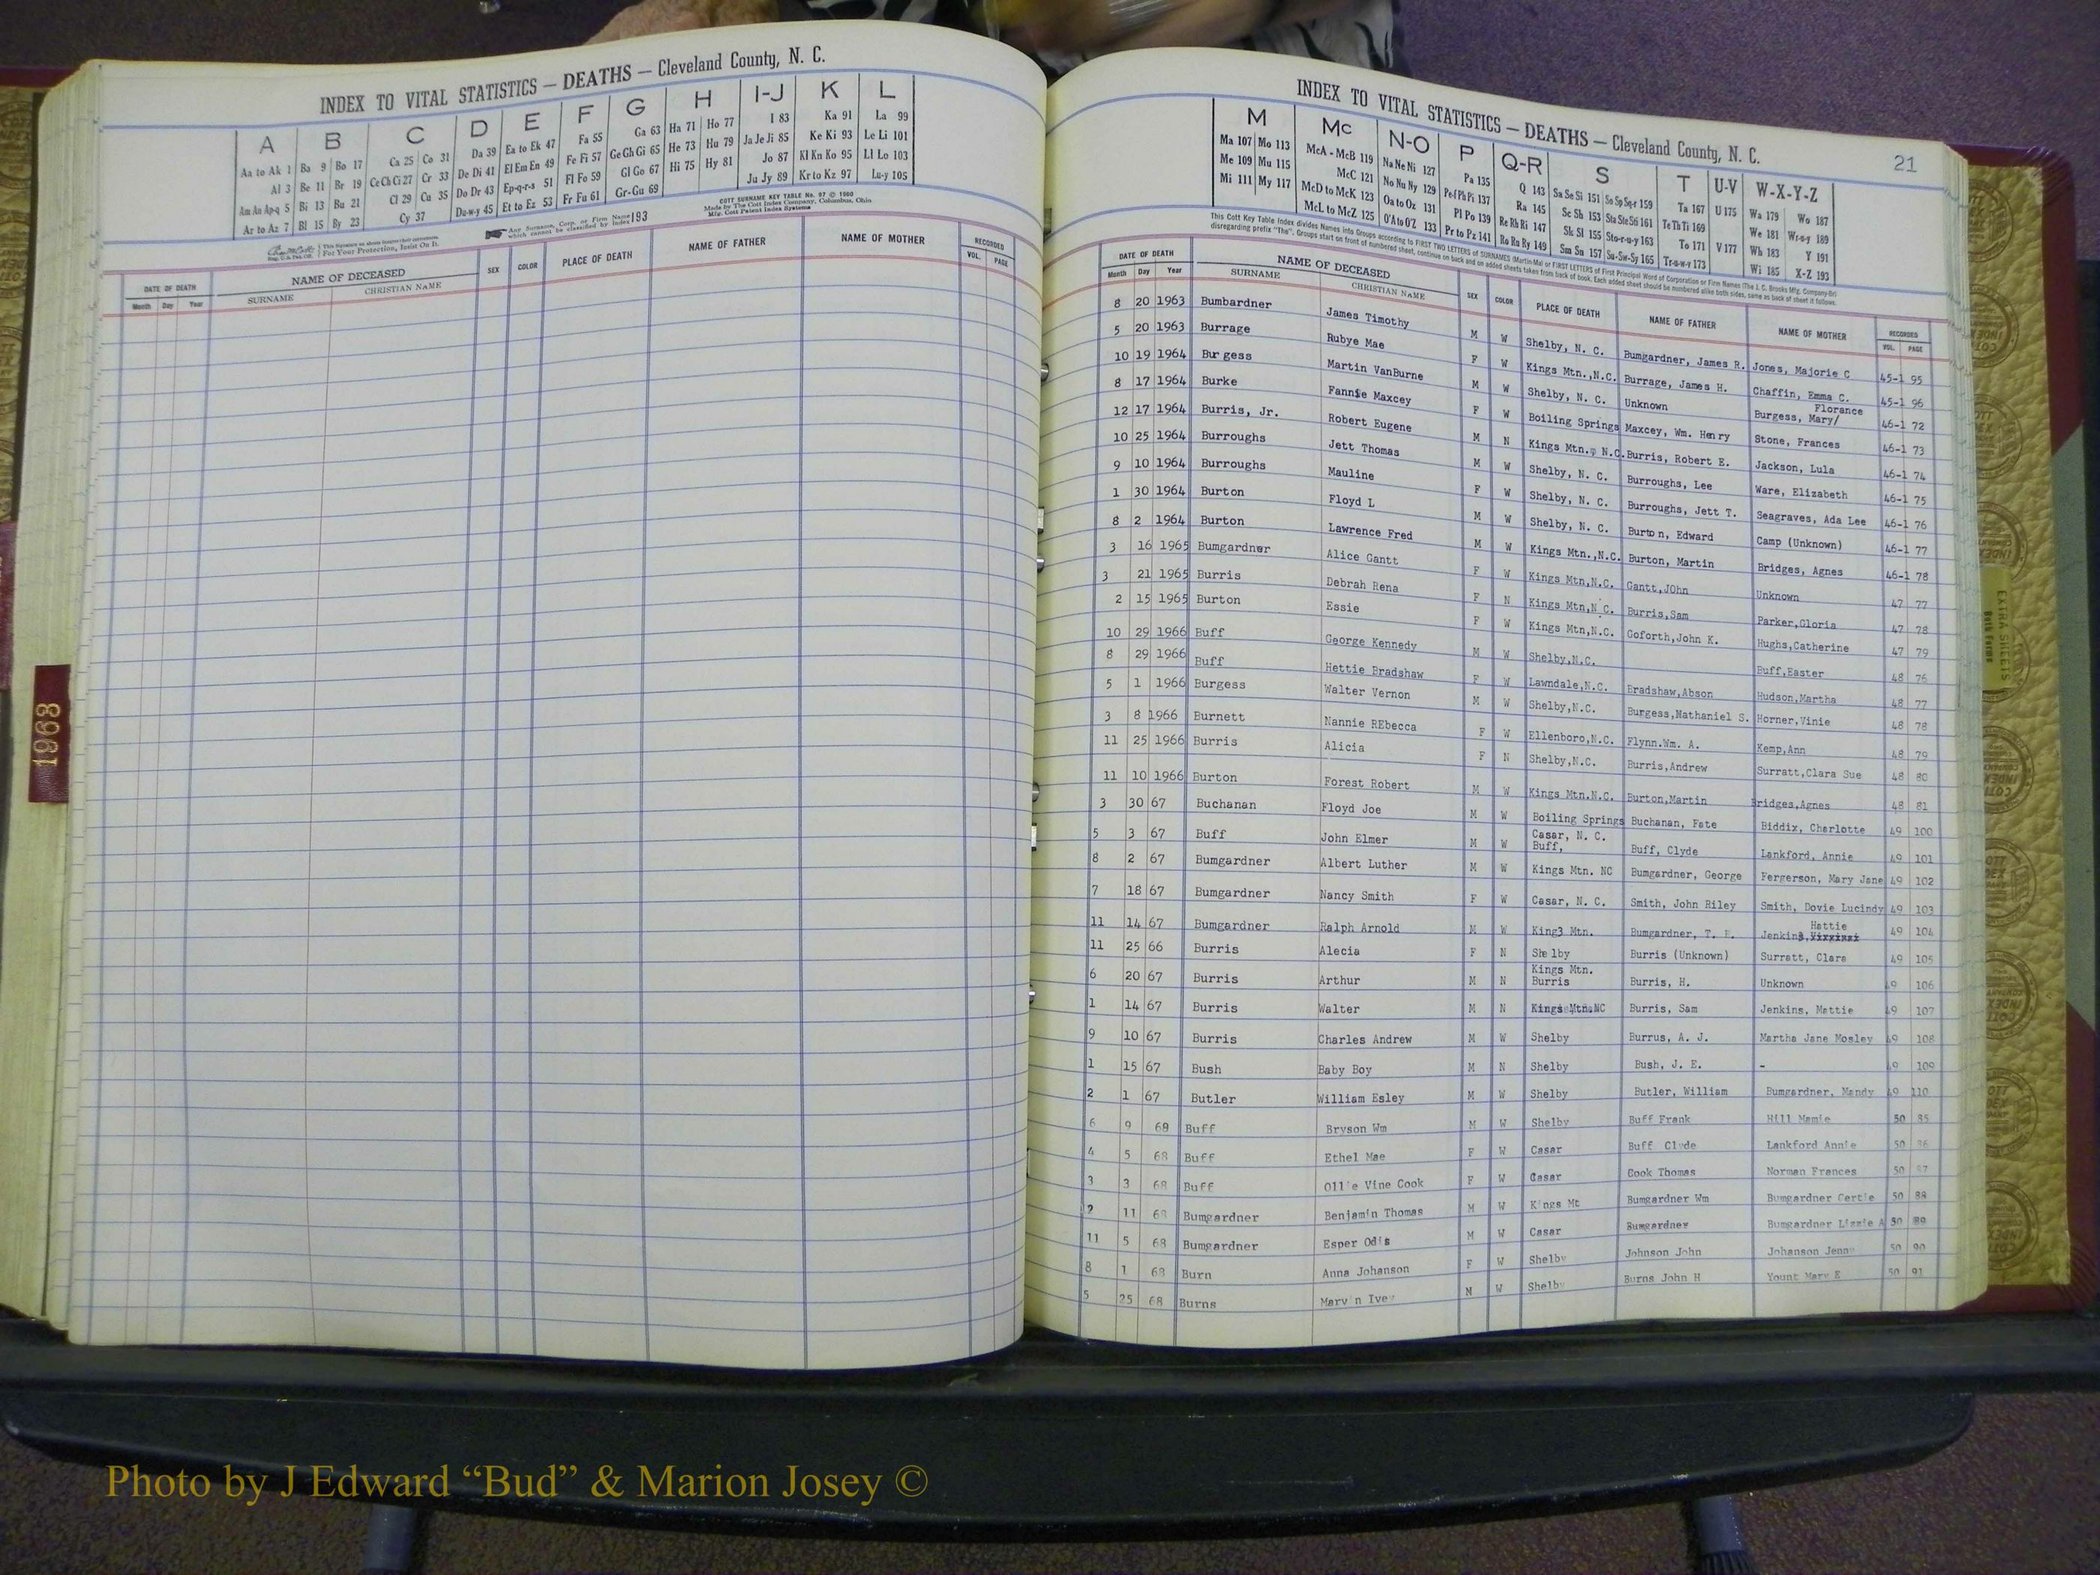 INDEX TO VITAL STATISTICS — DEATHS — Cleveland County, N. C.
A B C D E F G H I-J K L
Aa to Ak 1 Ba 9 Bo 17 Ca 25 Co 31 Da 39 Ea to Ek 47 Fa 55 Ga 63 Ha 71 Ho 77 I 83 Ka 91 La 99
Al 3 Be 11 Br 19 Ce Ch Ci 27 Cr 33 De Di 41 El Em En 49 Fe Fi 57 Ge Gh Gi 65 He 73 Hu 79 Ja Je Ji 85 Ke Ki 93 Le Li 101
Am An Ap-q 5 Bi 13 Bu 21 Cl 29 Cu 35 Do Dr 43 Ep-q-r-s 51 Fl Fo 59 Gl Go 67 Hi 75 Hy 81 Jo 87 Kl Kn Ko 95 Ll Lo 103
Ar to Az 7 Bl 15 By 23 Cy 37 Du-w-y 45 Et to Ez 53 Fr Fu 61 Gr-Gu 69 Ju Jy 89 Kr to Kz 97 Lu-y 105
COTT SURNAME KEY TABLE No. 97 © 1960
Made by The Cott Index Company, Columbus, Ohio
Mfg. Cott Patent Index Systems
This Signature on sheets insures their correctness.
For Your Protection, Insist On It.
Any Surname, Corp. or Firm Name which cannot be classified by Index 193
DATE OF DEATH NAME OF DECEASED SEX COLOR PLACE OF DEATH NAME OF FATHER NAME OF MOTHER RECORDED
Month Day Year SURNAME CHRISTIAN NAME VOL. PAGE
1968
INDEX TO VITAL STATISTICS — DEATHS — Cleveland County, N. C. 21
M Mc N-O P Q-R S T U-V W-X-Y-Z
Ma 107 Mo 113 McA - McB 119 Na Ne Ni 127 Pa 135 Q 143 Sa Se Si 151 So Sp Sq-r 159 Ta 167 U 175 Wa 179 Wo 187
Me 109 Mu 115 McC 121 No Nu Ny 129 Pe-f Ph Pi 137 Ra 145 Sc Sh 153 Sta Ste Sti 161 Te Th Ti 169 We 181 Wr-u-y 189
Mi 111 My 117 McD to McK 123 Oa to Oz 131 Pl Po 139 Re Rh Ri 147 Sk Sl 155 Sto-r-u-y 163 To 171 V 177 Wh 183 Y 191
McL to McZ 125 O'A to O'Z 133 Pr to Pz 141 Ro Ru Ry 149 Sm Sn 157 Su-Sw-Sy 165 Tr-u-w-y 173 Wi 185 X-Z 193
This Cott Key Table Index divides Names into Groups according to FIRST TWO LETTERS of SURNAMES (Martin-Ma) or FIRST LETTERS of First Principal Word of Corporation or Firm Names (The J. C. Brooks Mfg. Company-Br)
disregarding prefix "The". Groups start on front of numbered sheet, continue on back and on added sheets taken from back of book. Each added sheet should be numbered alike both sides, same as back of sheet it follows.
DATE OF DEATH NAME OF DECEASED SEX COLOR PLACE OF DEATH NAME OF FATHER NAME OF MOTHER RECORDED
Month Day Year SURNAME CHRISTIAN NAME VOL. PAGE
8 20 1963 Bumbardner James Timothy M W Shelby, N. C. Bumgardner, James R. Jones, Majorie C 45-1 95
5 20 1963 Burrage Rubye Mae F W Kings Mtn.,N.C. Burrage, James H. Chaffin, Emma C. 45-1 96
10 19 1964 Burgess Martin VanBurne M W Shelby, N. C. Unknown Burgess, Mary/ Florance 46-1 72
8 17 1964 Burke Fannie Maxcey F W Boiling Springs Maxcey, Wm. Henry Stone, Frances 46-1 73
12 17 1964 Burris, Jr. Robert Eugene M N Kings Mtn., N.C. Burris, Robert E. Jackson, Lula 46-1 74
10 25 1964 Burroughs Jett Thomas M W Shelby, N. C. Burroughs, Lee Ware, Elizabeth 46-1 75
9 10 1964 Burroughs Mauline F W Shelby, N. C. Burroughs, Jett T. Seagraves, Ada Lee 46-1 76
1 30 1964 Burton Floyd L M W Shelby, N. C. Burton, Edward Camp (Unknown) 46-1 77
8 2 1964 Burton Lawrence Fred M W Kings Mtn.,N.C. Burton, Martin Bridges, Agnes 46-1 78
3 16 1965 Bumgardner Alice Gantt F W Kings Mtn,N.C. Gantt,JOhn Unknown 47 77
3 21 1965 Burris Debrah Rena F N Kings Mtn,N.C. Burris,Sam Parker,Gloria 47 78
2 15 1965 Burton Essie F W Kings Mtn,N.C. Goforth,John K. Hughs,Catherine 47 79
10 29 1966 Buff George Kennedy M W Shelby,N.C. Buff,Easter 48 76
8 29 1966 Buff Hettie Bradshaw F W Lawndale,N.C. Bradshaw,Abson Hudson,Martha 48 77
5 1 1966 Burgess Walter Vernon M W Shelby,N.C. Burgess,Mathaniel S. Horner,Vinie 48 78
3 8 1966 Burnett Nannie REbecca F W Ellenboro,N.C. Flynn.Wm. A. Kemp,Ann 48 79
11 25 1966 Burris Alicia F N Shelby,N.C. Burris,Andrew Surratt,Clara Sue 48 80
11 10 1966 Burton Forest Robert M W Kings Mtn.N.C. Burton,Martin Bridges,Agnes 48 81
3 30 67 Buchanan Floyd Joe M W Boiling Springs Buchanan, Fate Biddix, Charlotte 49 100
5 3 67 Buff John Elmer M W Casar, N. C. Buff, Buff, Clyde Lankford, Annie 49 101
8 2 67 Bumgardner Albert Luther M W Kings Mtn. NC Bumgardner, George Fergerson, Mary Jane 49 102
7 18 67 Bumgardner Nancy Smith F W Casar, N. C. Smith, John Riley Smith, Dovie Lucindy 49 103
11 14 67 Bumgardner Ralph Arnold M W King3 Mtn. Bumgardner, T. E. Jenkins, Hattie 49 104
11 25 66 Burris Alecia F N Shelby Burris (Unknown) Surratt, Clara 49 105
6 20 67 Burris Arthur M N Kings Mtn. Burris Burris, H. Unknown 49 106
1 14 67 Burris Walter M N Kings Mtn. NC Burris, Sam Jenkins, Mattie 49 107
9 10 67 Burris Charles Andrew M W Shelby Burrus, A. J. Martha Jane Mosley 49 108
1 15 67 Bush Baby Boy M N Shelby Bush, J. E. - 49 109
2 1 67 Butler William Esley M W Shelby Butler, William Bumgardner, Mandy 49 110
6 9 68 Buff Bryson Wm M W Shelby Buff Frank Hill Mamie 50 85
4 5 68 Buff Ethel Mae F W Casar Buff Clyde Lankford Annie 50 86
3 3 68 Buff Ollie Vine Cook F W Casar Cook Thomas Norman Frances 50 87
2 11 68 Bumgardner Benjamin Thomas M W Kings Mt Bumgardner Wm Bumgardner Gertie 50 88
11 5 68 Bumgardner Esper Odis M W Casar Bumgardner Bumgardner Lizzie A 50 89
8 1 68 Burn Anna Johanson F W Shelby Johnson John Johanson Jenny 50 90
5 25 68 Burns Marvin Ivey M W Shelby Burns John H Yount Mary E 50 91
EXTRA SHEETS
Both Forms
Photo by J Edward “Bud” & Marion Josey ©